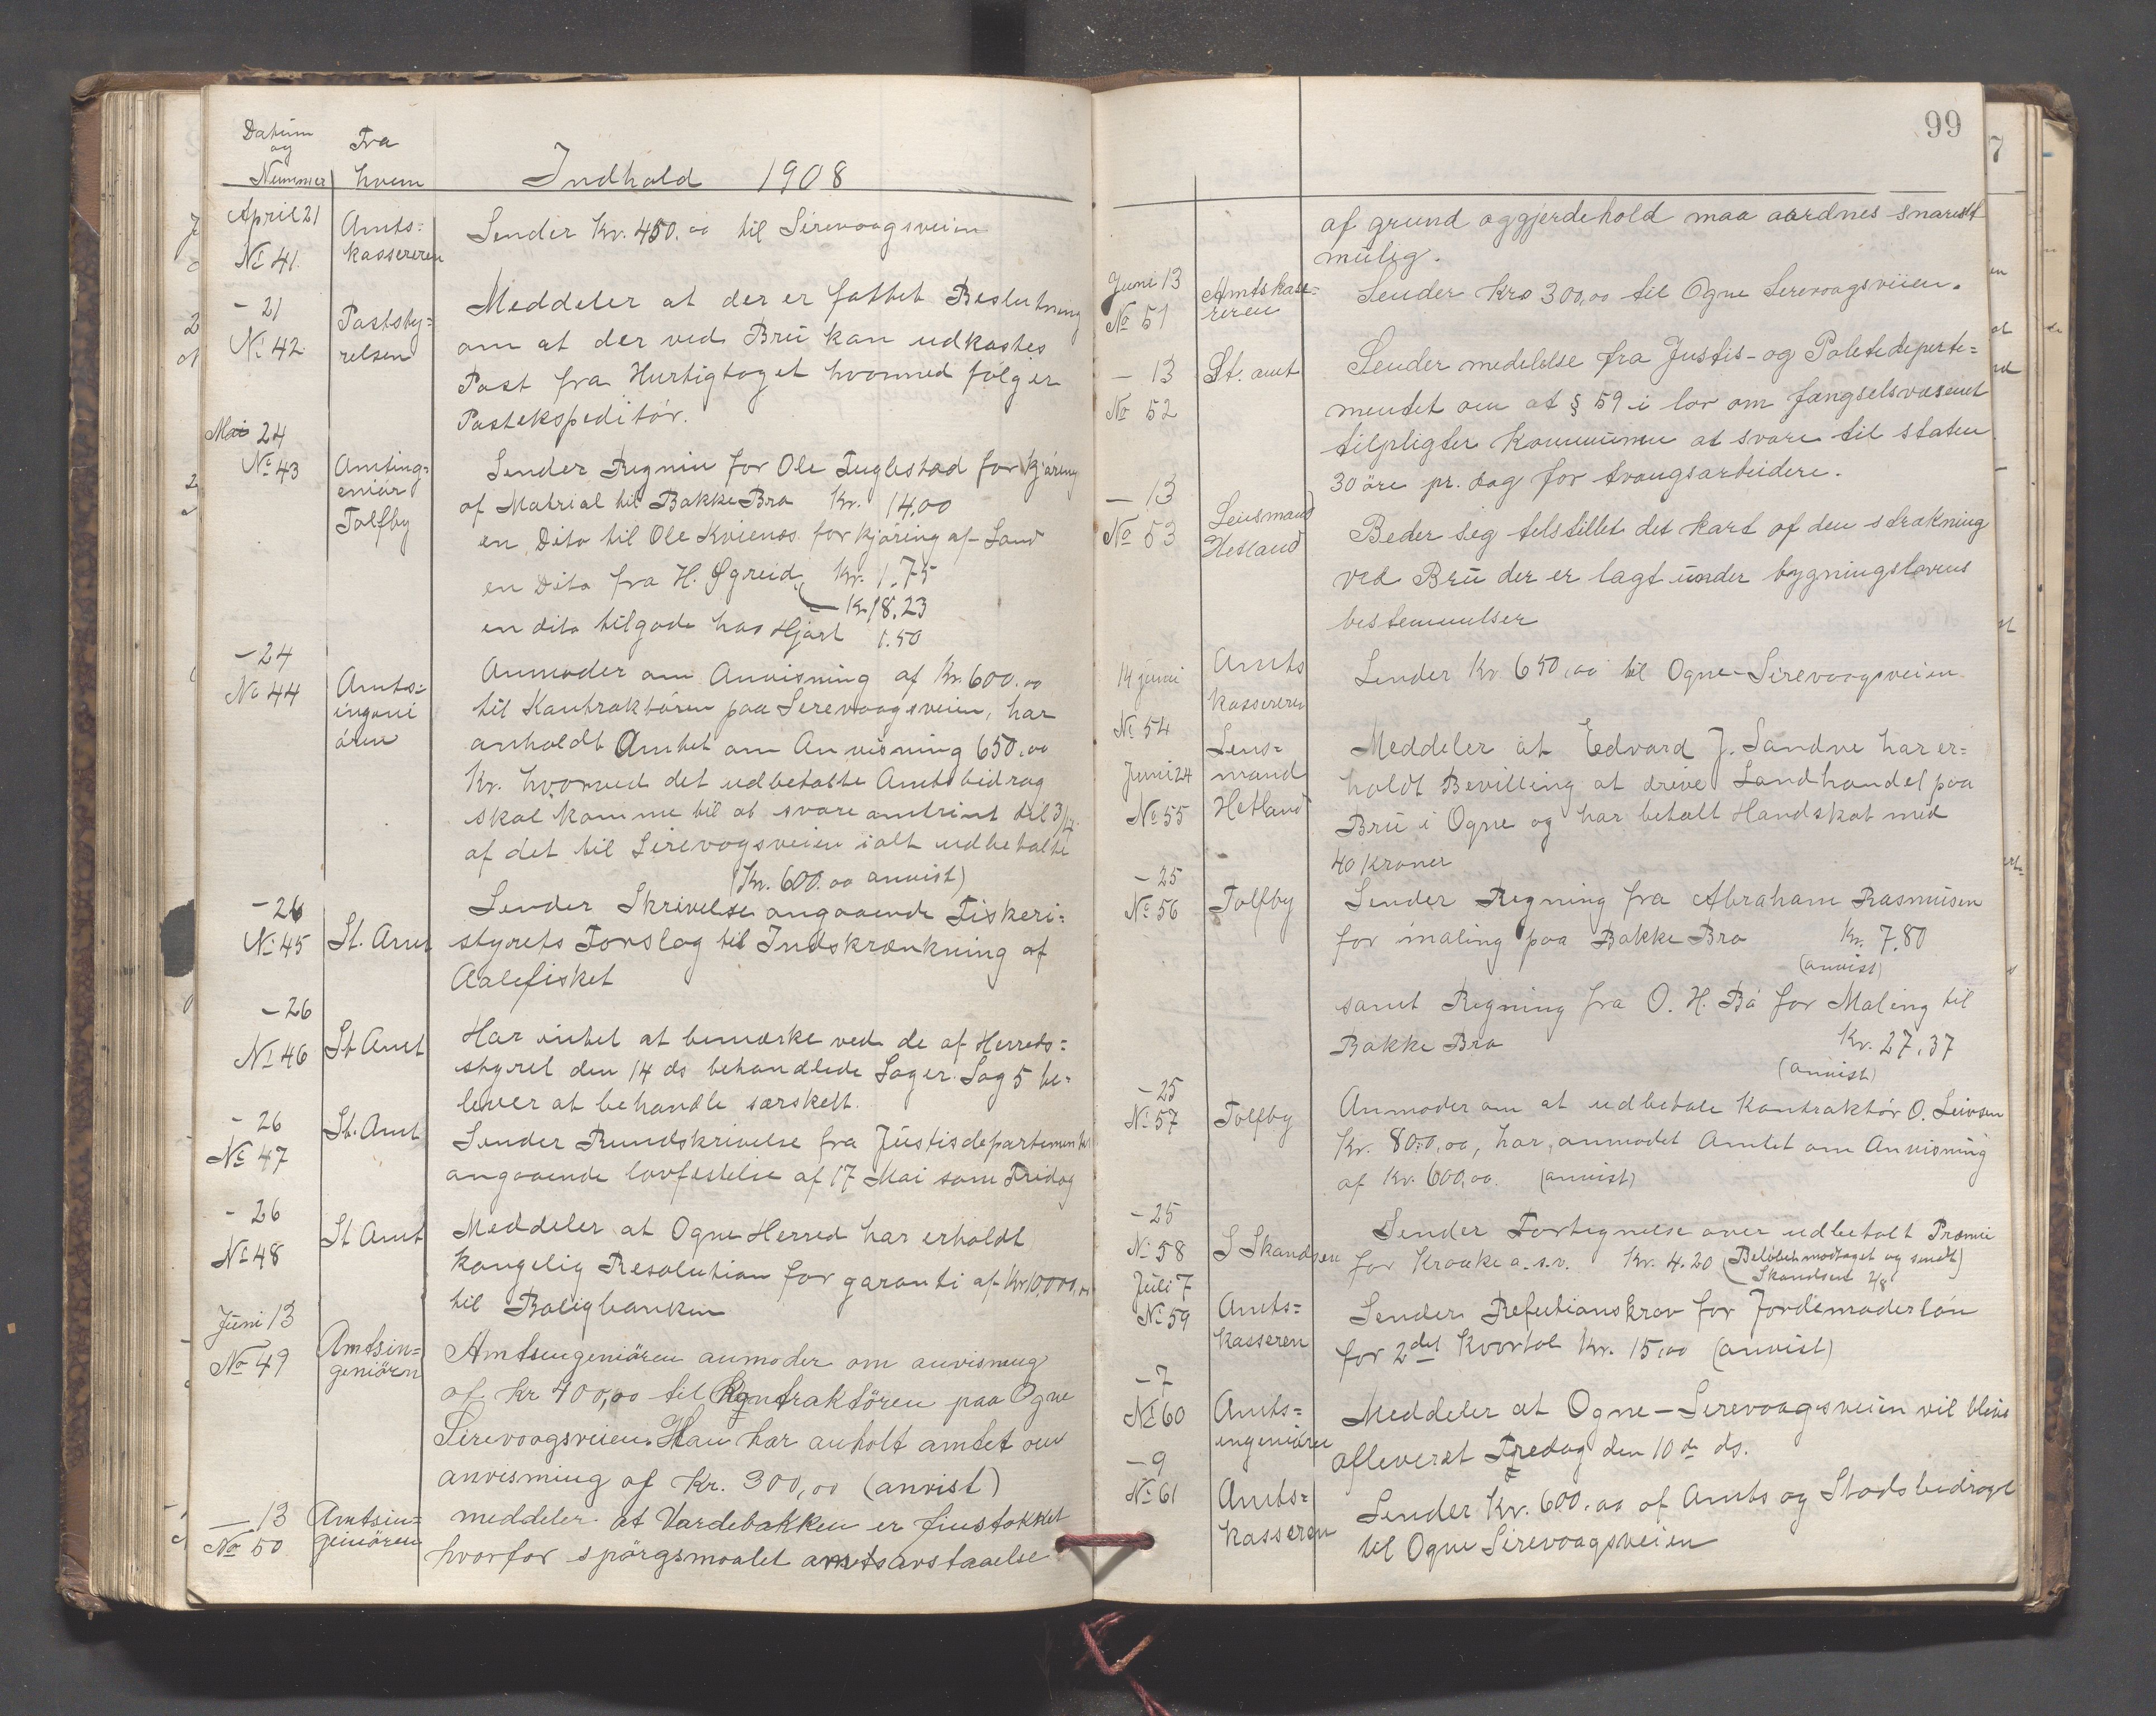 Datum
og
Nummer
Fra
hvem
Indhold 1908
April 21
No 41
Amts=
kassereren
Sender Kr. 450.00 til Sirevaagsveien
- 21
No 42
Poststy=
relsen
Meddeler at der er fattet Beslutning
om at der ved Bru kan udkastes
Post fra Hurtigtoget hvormed følger
Postekspeditör.
Mai 24
No 43
Amting=
eniör
Tolfby
Sender Regnin for Ole Fuglestad for kjöring
af Matrial til Bakke Bro Kr. 14,00
en Dito til Ole Kvienes for kjöring af Sand
Kr. 1.75
en Dito fra H. Øgreid
Kr 18.23
en dito tilgode hos Hjort 1.50
- 24
No 44
Amts=
ingeni
ören
Anmoder om Anvisning af Kr. 600.00
til Kontraktören paa Sirevaagsveien, har
anholdt Amtet om Anvisning 650.00
Kr. hvormed det udbetalte Amtsbidrag
skal komme til at svare omtrint til 3/4
af det til Sirevogsveien ialt udbetalte
(Kr. 600.00 anvist)
- 26
No 45
St. Amt
Sender Skrivelse angaaende Fiskeri=
styrets Forslag til Indskrænkning af
Aalefisket
- 26
No 46
St Amt
Har intet at bemærke ved de af Herreds=
styret den 14 ds behandlede Sager. Sag 5 be=
lever at behandle særskelt.
- 26
No 47
St. Amt
Sender Rundskrivelse fra Justisdepartementet
angaaende lovfestelse af 17 Mai som Fridag
- 26
No 48
St Amt
Meddeler at Ogne Herred har erholdt
kongelig Resolution for garanti af Kr 10,000,00
til Boligbanken
Juni 13
No 49
Amtsin=
geniören
Amtsingeniören anmoder om anvisning
af kr 400,00 til Kontraktören paa Ogne
Sirevaagsveien. Han har anholt amtet om
anvisning af Kr. 300,00 (anvist)
- 13
No 50
Amtsin=
geniören
meddeler at Vardebakken er finstokket
hvorfor spörgsmaalet avstaaelse
99
af grund og gjerdehold maa aordnes snarest
mulig.
Juni 13
No 51
Amtskass=
reren
Sender Kro 300,00 til Ogne Sirevaagsveien.
- 13
No 52
St. amt
Sender medelelse fra Justis- og Politideparte=
mentet om at § 59 i lov om fængselsvæsenet
tilpligter Kommunen at svare til staten
30 öre pr. dag for tvangsarbeidere.
- 13
No 53
Lensmand
Hetland
Beder sig telstillet det kart af den strækning
ved Bru der er lagt under bygningslovens
bestemmelser
14 juni
No 54
Amts
kassereren
Sender Kr 650,00 til Ogne-Sirevaagsveien
Juni 24
No 55
Lens=
mand
Hetland
Meddeler at Edvard J. Sandve har er=
holdt Bevilling at drive Landhandel paa
Bru i Ogne og har betalt Handskat med
40 Kroner
- 25
No 56
Tolfby
Sender Regning fra Abraham Rasmusen
for maling paa Bakke Bro Kr. 7.80
(anvist)
samt Regning fra O. H. Bö for Maling til
Bakke Bro Kr. 27.37
(anvist)
- 25
No 57
Tolfby
Anmoder om at udbetale Kontraktör O. Seivsen
Kr. 800,00, har anmodet Amtet om Anvisning
af Kr. 600,00. (anvist)
- 25
No 58
S Skandsen
Sender Fortegnelse over udbetalt Præmie
for Kraake o.s.v. Kr. 4.20 (Belöbet modtaget og sendt)
Skandsen 4/8
Juli 7
No 59
Amts=
kasseren
Sender Refutionskrav for Jordemoderlön
for 2det Kvartal Kr. 15,00 (anvist)
- 7
No 60
Amts=
ingeniören
Meddeler at Ogne-Sirevaagsveien vil blive
afleveret Fredag den 10de ds.
- 9
No 61
Amts=
kasseren
Sender Kr. 600.00 af Amts og Stadsbidraget
til Ogne Sirevaagsveien